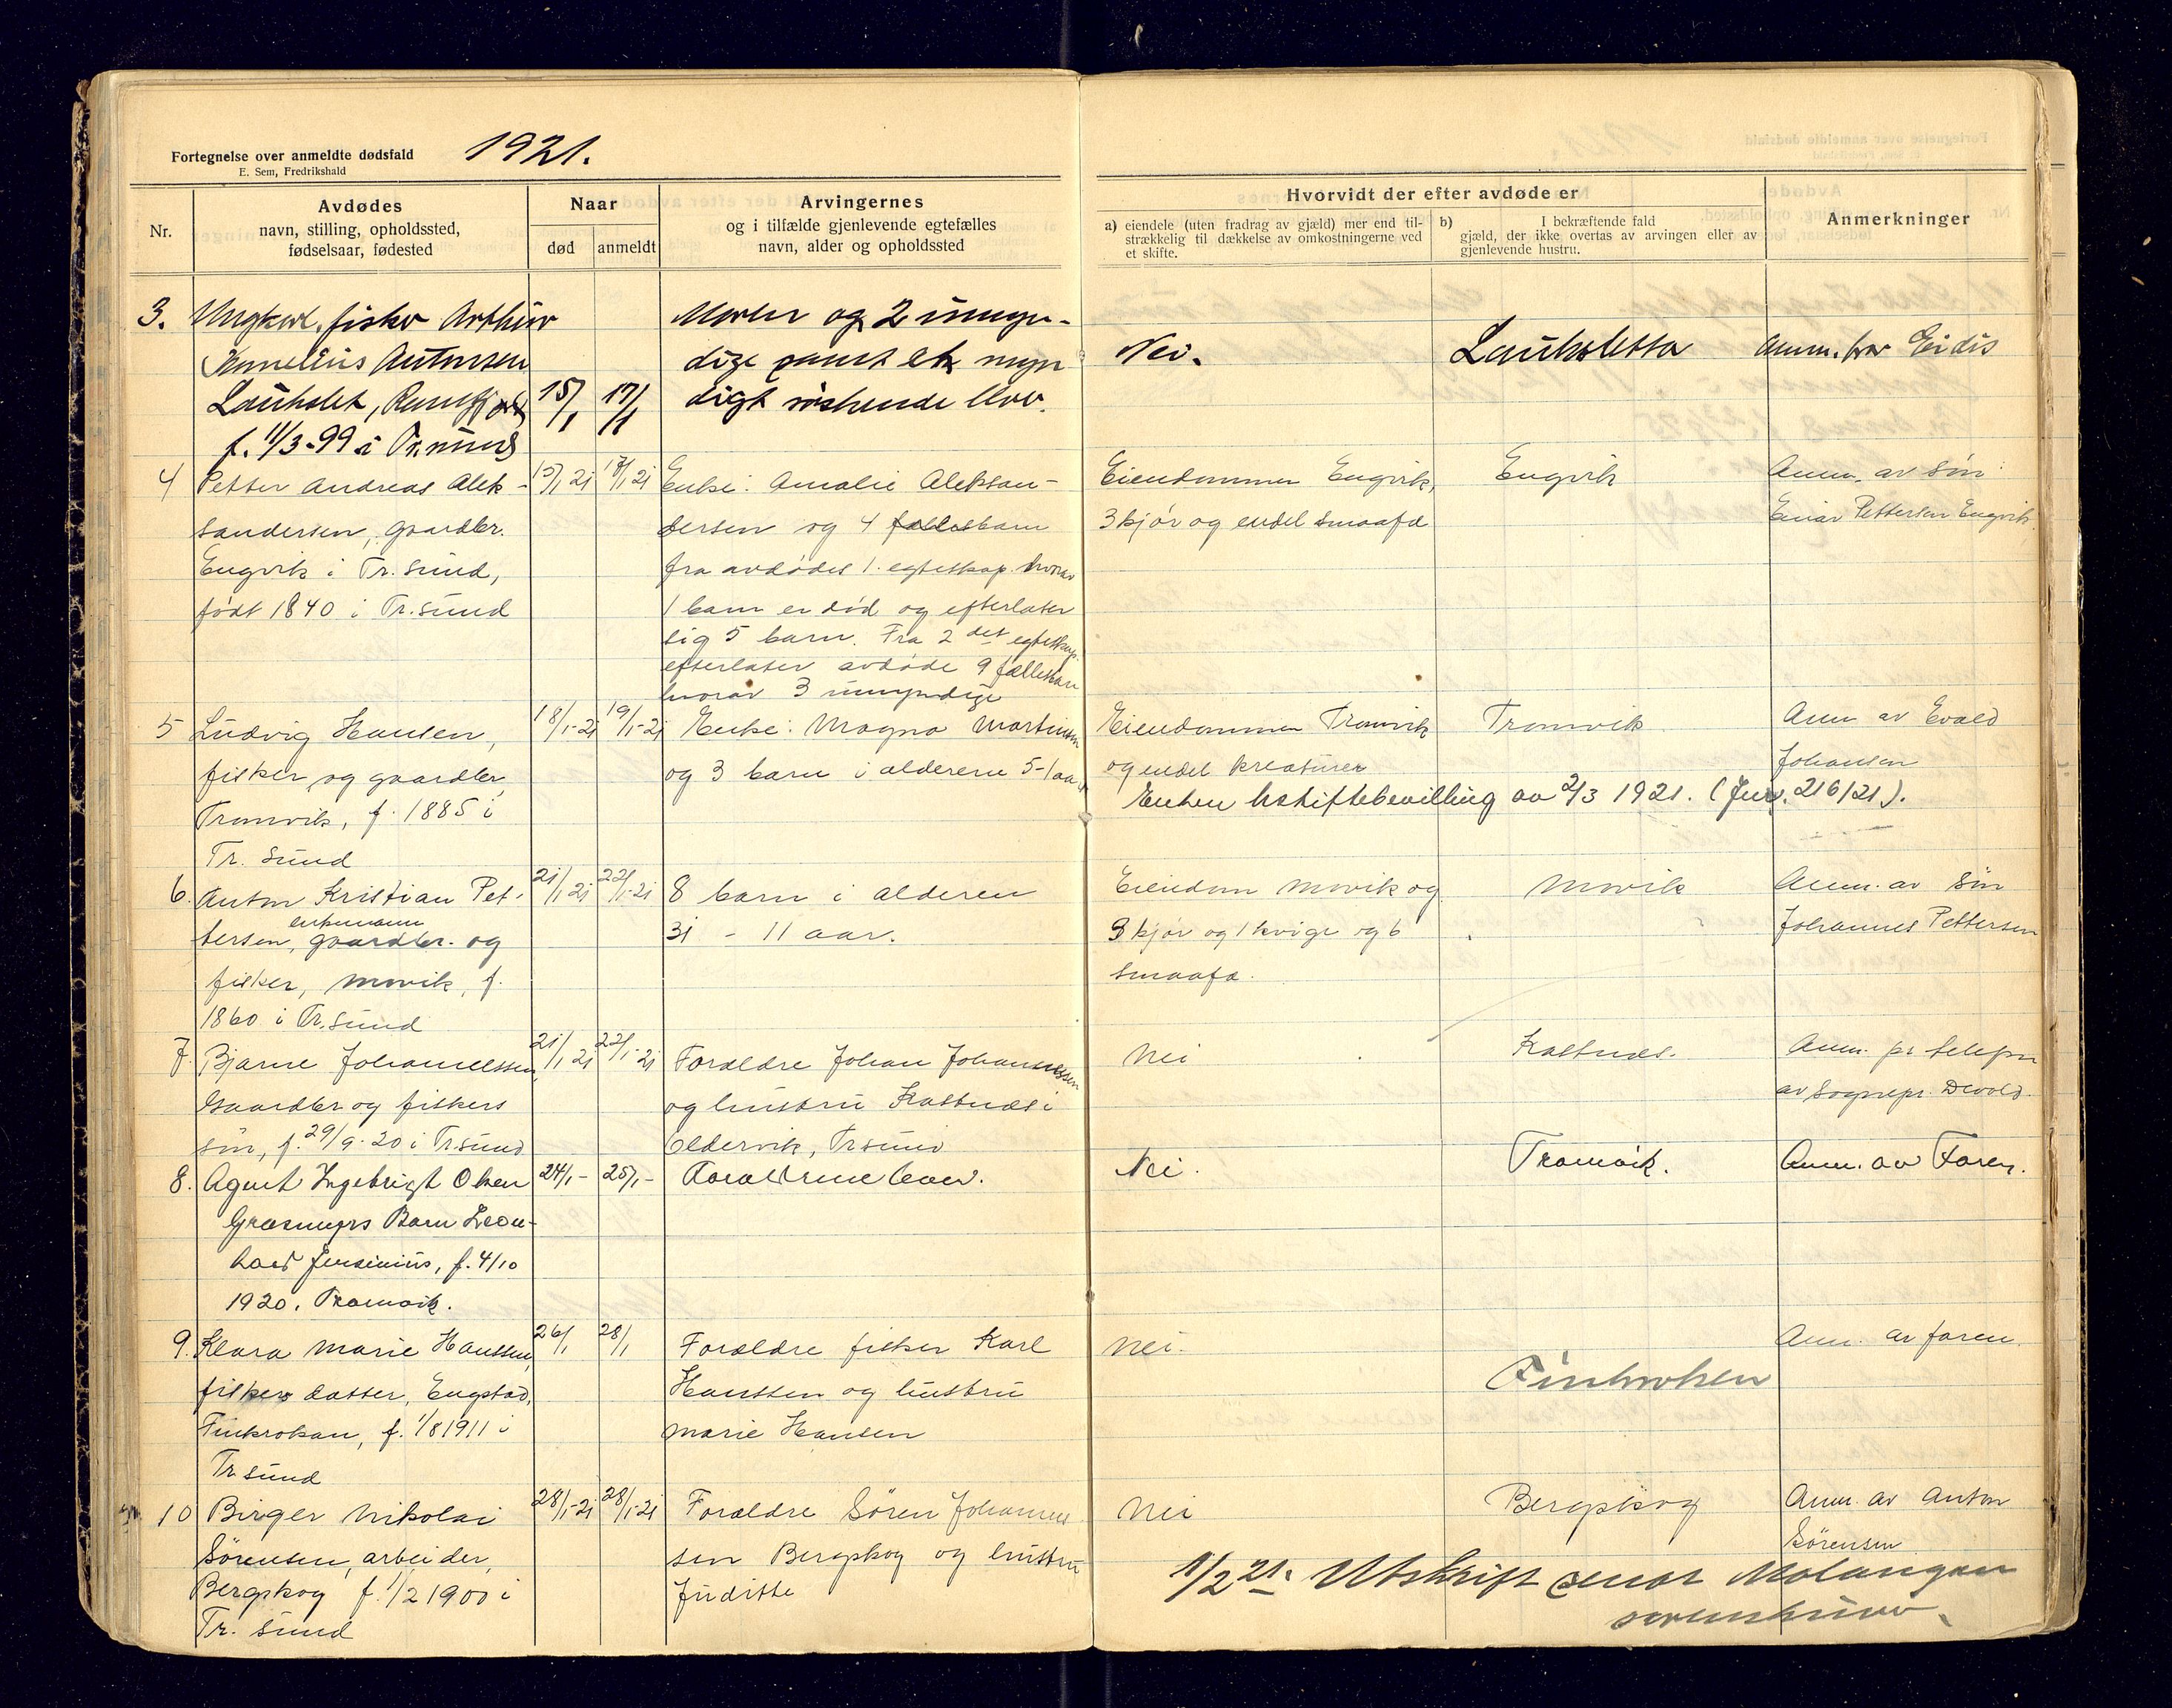 Fortegnelse over anmeldte dødsfald 1921.
E. Sem, Fredrikshald
Nr.
Avdødes
navn, stilling, opholdssted,
fødselsaar, fødested
Naar
død
anmeldt
Arvingernes
og i tilfælde gjenlevende egtefælles
navn, alder og opholdssted
Hvorvidt der efter avdøde er
a) eiendele (uten fradrag av gjæld) mer end til-
strækkelig til dækkelse av omkostningerne ved
et skifte.
b) I bekræftende fald
gjæld, der ikke overtas av arvingen eller av
gjenlevende hustru.
Anmerkninger
3. Ungkarl, fisker Arthur
Kornelius Antonsen
Laukslet,
f. 11/3-99 i Tr.sund
15/1
17/1
Moder og 2 umyn-
dige samt et myn
digt søskende lever.
Nei.
Laukslett
Anm. fra Eidis
4 Petter Andreas Alek-
sandersen, gaardbr.
Engvik i Tr. sund,
født 1840 i Tr. sund
15/1 21
18/1 21
Enke: Amalie Aleksan-
dersen og 4 fællesbarn
fra avdødes 1. egteskap hvorav
1 barn er død og efterlater
sig 5 barn. Fra 2 det egteskap
efterlater avdøde 9 fællesbarn
hvorav 3 umyndige
Eiendommen Engvik,
3 kjør og endel smaafæ
Engvik
Anm. av søn
Einar Pettersen Engvik
5 Ludvig Hansen,
fisker og gaardbr,
Tromvik, f. 1885 i
Tr. sund
18/1-21
19/1-21
Enke: Magna Martinsen
og 3 barn i alderen 5-1 aar
Eiendommen Tromvik
og endel kreaturer
Tromvik
Anm av Evald
Johansen
Enken uskiftebevilling av 2/3 1921. (Jur. 216/21).
6. Anton Kristian Pet-
tersen, enkemann gaardbr. og
fisker, Movik, f.
1860 i Tr. sund
21/1 21
22/1-21
8 barn i alderen
31 - 11 aar.
Eiendom Movik og
3 kjør og 1 kvige og 6
smaafæ.
Movik
Anm. av søn
Johannes Pettersen
7. Bjarne Johannessen,
Gaardbr og fiskers
søn, f. 29/9-20 i Tr. sund
21/1 21
22/1-21
Forældre Johan Johannessen
og hustru Kastnes i
Oldervik, Tr sund
Nei
Kastnes.
Anm. pr telefon
av Sognepr. Devold.
8. Agent Ingebrigt Olsen
Græsmyrs Barn Leon-
hard Jensenius, f. 4/10
1920. Tromvik.
24/1-
25/1-
Forældrene lever.
Nei.
Tromvik.
Anm. av Faren.
9. Klara Marie Hanssen,
fiskers datter, Engstad,
Finkroken, f. 1/8 1911 i
Tr sund
26/1
28/1
Forældre fisker Karl
Hanssen og hustru
Marie Hansen
Nei.
Finkroken
Anm. av faren.
10 Birger Nikolai
Sørensen, arbeider,
Bergskog f. 1/2 1900 i
Tr. sund
28/1-21
28/1-21
Forældre Søren Johannes
sen Bergskog og hustru
Juditte
Nei
Bergskog
Anm. av Anton
Sørensen
1/2 21. Utskrift sendt Malangen
sorenskriver.